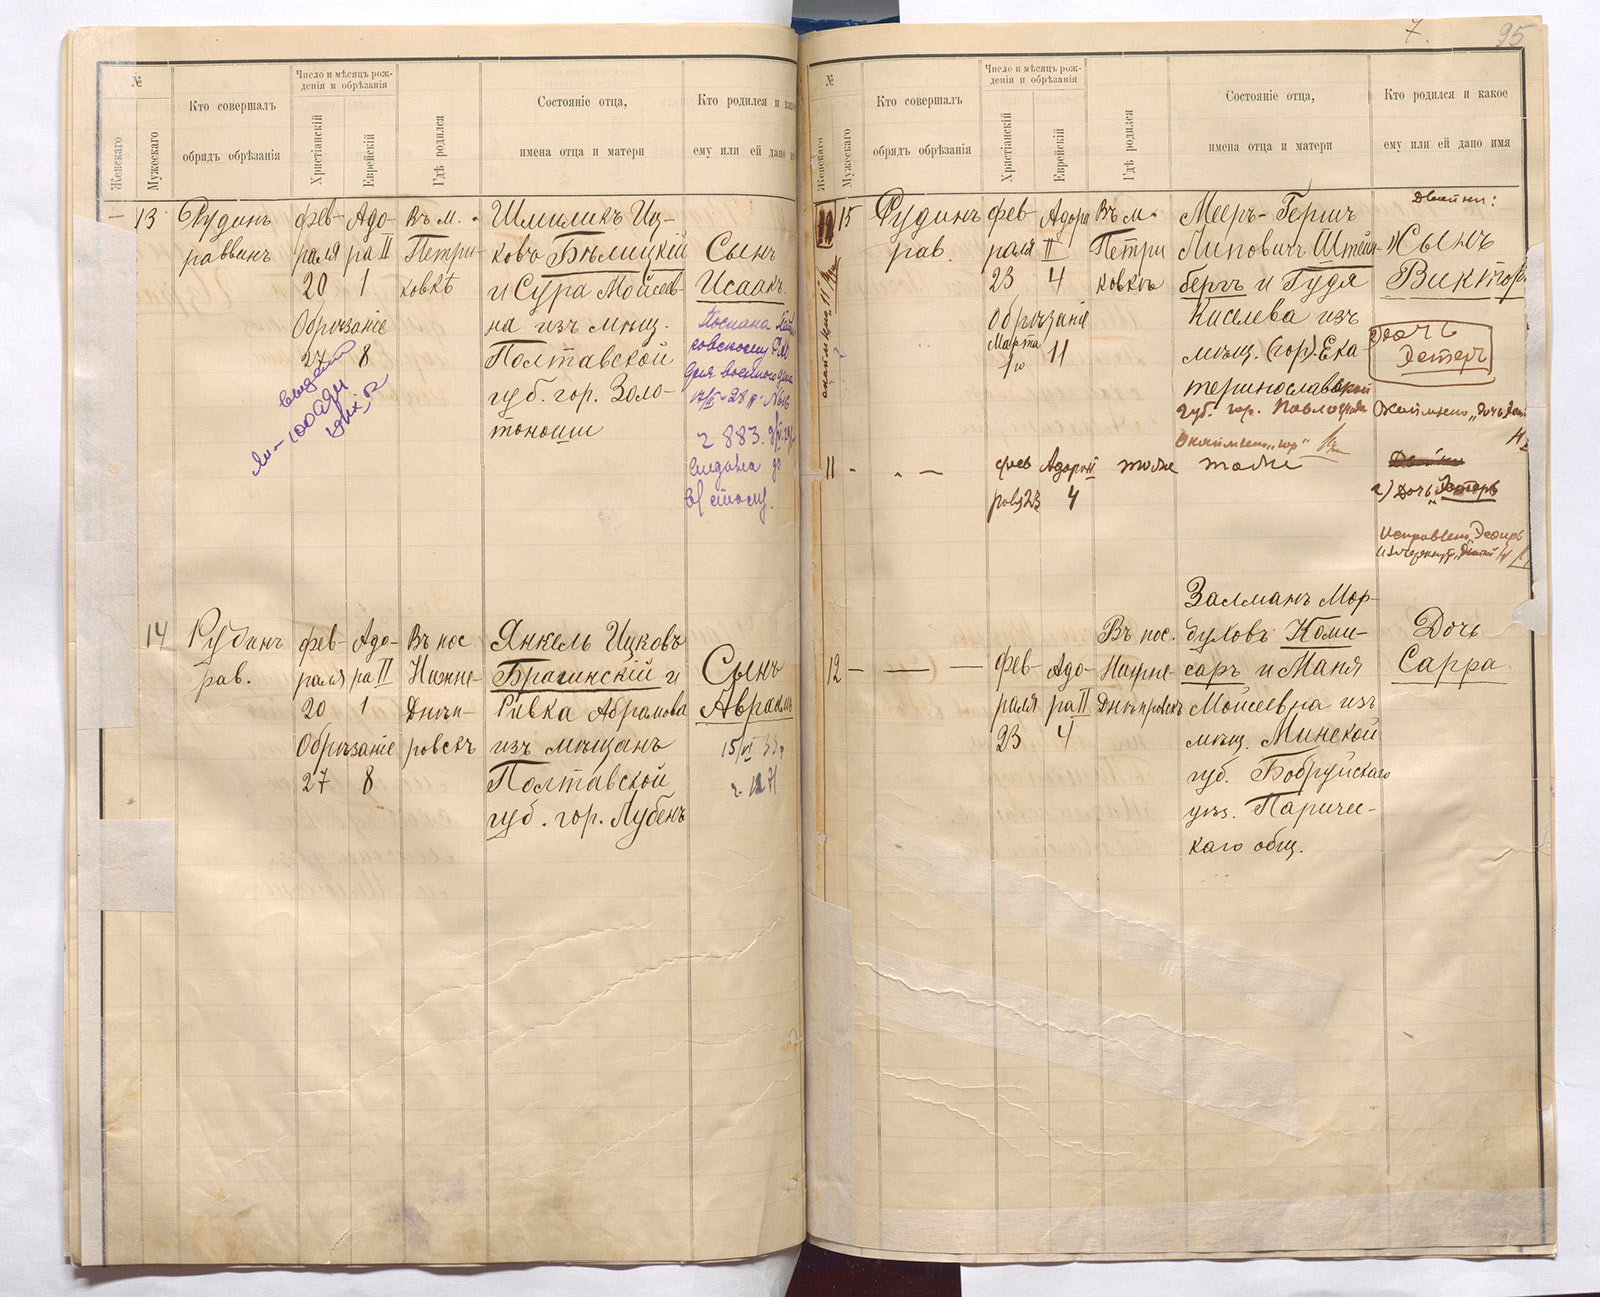 №
Женскаго
Мужескаго
Кто совершалъ
обрядъ обрѣзанія
Число и мѣсяцъ рож-
денія и обрѣзанія
Христіанскій
Еврейскій
Гдѣ родился
Состояніе отца,
имена отца и матери
Кто родился и како
ему или ей дано
13
Рудинъ
раввинъ
фев-
раля
20
Обрѣзаніе
27
Адо-
ра II
1
8
Въ м.
Петри-
ковкѣ
Шмиликъ Иц-
ковъ Бѣлицкій
и Сура Мойсеев-
на изъ мѣщ.
Полтавской
губ. гор. Золо-
тоноши
Сынъ
Исаакъ
Послана
2883.
выдана
14
Рудинъ
рав.
фев-
раля
20
Обрѣзаніе
27
Адо-
ра II
1
8
Въ пос
Нижне-
Днѣп-
ровскъ
Янкель Ицковъ
Брагинскій и
Ривка Абрамова
изъ мѣщанъ
Полтавской
губ. гор. Лубенъ
Сынъ
Авраамъ
7.
95
№
Женскаго
Мужескаго
Кто совершалъ
обрядъ обрѣзанія
Число и мѣсяцъ рож-
денія и обрѣзанія
Христіанскій
Еврейскій
Гдѣ родился
Состояніе отца,
имена отца и матери
Кто родился и какое
ему или ей дано имя
15
Рудинъ
рав.
фев-
раля
23
Обрѣзаніе
Марта
1го
Адора
II
4
11
Въ м.
Петри
ковкѣ
Мееръ-Гершъ
Липовичъ Штейн-
бергъ и Гудя
Киселева изъ
мѣщ. (гор). Ека
теринославской
губ. гор.
Двойни:
1) Сынъ
Викторъ
Дочь
Эстеръ
11 - - -
фев
23
Адора II
4
тоже
тоже
2) Дочь
12 - - -
фев-
раля
23
Адо-
ра II
4
Въ пос.
Нижне-
Днѣпровскъ
Залманъ Мор-
духовъ Коми-
саръ и Маня
Мойсеевна изъ
мѣщ. Минской
губ. Бобруйскаго
уѣз. Паричс-
каго общ.
Дочь
Сарра